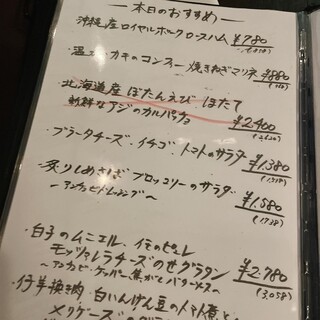 本日のおすすめ
沖縄産ロイヤルポークロースハム ¥780
・温玉 カキのコンフィ 焼きねぎマリネ ¥880
北海道産 ぼたんえび ほたて
新鮮なアジのカルパッチョ ¥2,400
・ブラータチーズ・イチゴ トマトのサラダ ¥1,380
・炙りしめさば ブロッコリーのサラダ
〜アンチョビドレッシング〜 ¥1,580
(1,738)
・白子のムニエル、イモのピュレ
モッツァレラチーズのせグラタン ¥2,780
〜アンチョビ・ケッパー焦がしバターソース〜 (3,058)
・仔羊挽き肉 白いんげん豆のトマト煮と
メリゲーズの